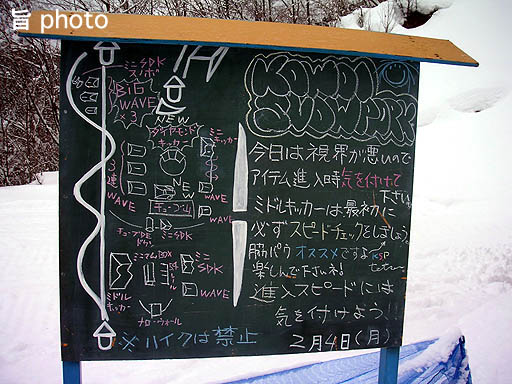 旨 photo
ミニSDK
スノボ
BiG
WAVE
×3
NEW
ダイヤモンド
キッカー
ミニ
キッカー
3
連
WAVE
NEW
チューブ山
WAVE
チューブDE
ドッカン
ミニSDK
ミニマムBOX
ミニ
SDK
ミドル
キッカー
WAVE
ナローウォール
※ハイクは禁止
SNOWPARK
今日は視界が悪いので
アイテム進入時気を付けて
下さい
ミドルキッカーは最初に
必ずスピードチェックをしましょう。
筋パウオススメですよ
楽しんで下さいネ!
KSP
進入スピードには
気を付けよう!!
2月4日(月)